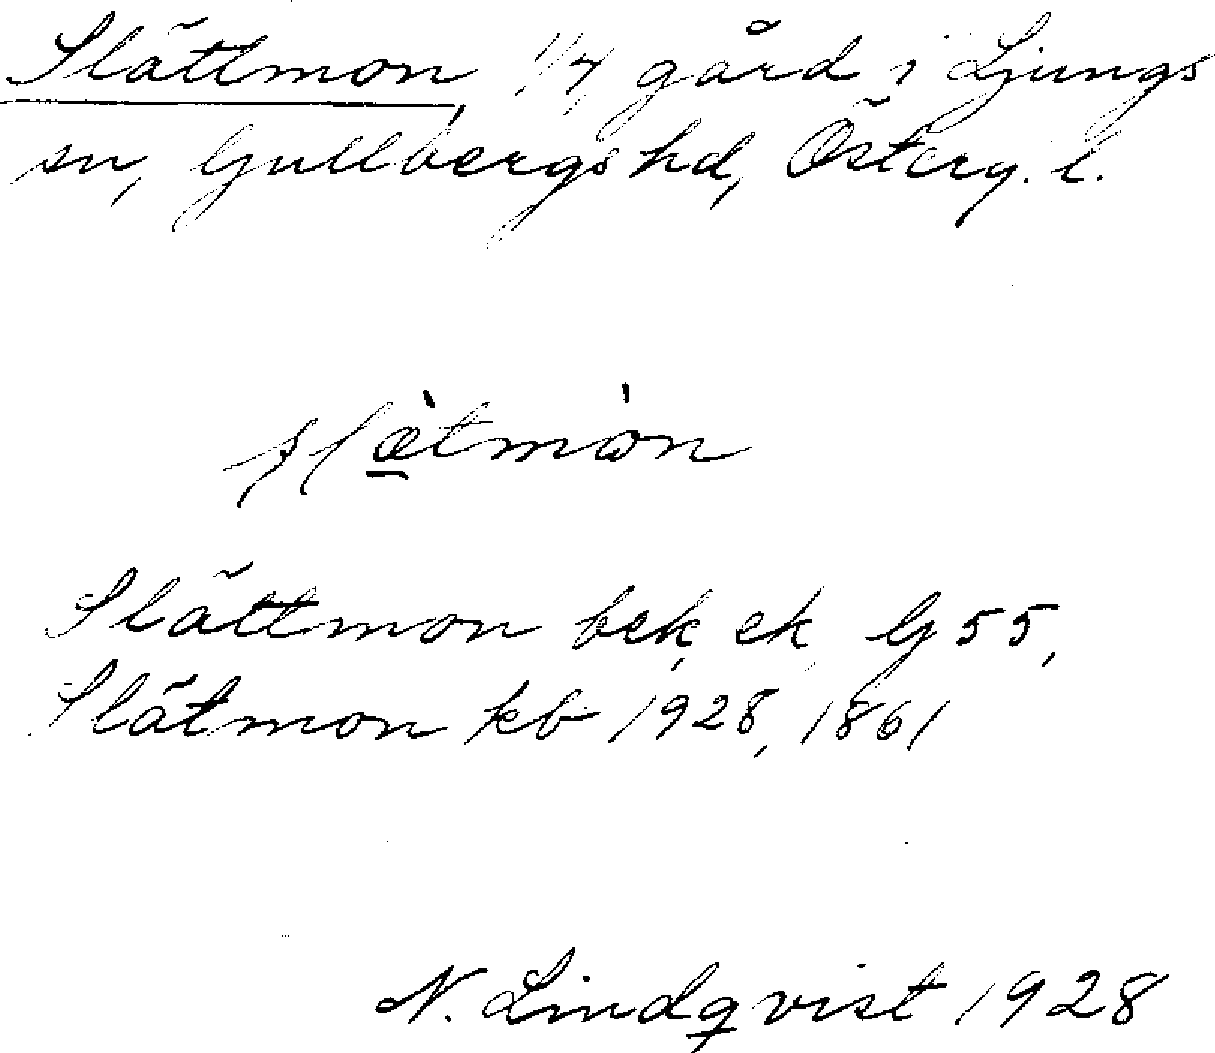 Slättmon, 1/4 gård i Ljungs
sn, Gullbergs hd, Österg. l.
slæ̀tmòn
Slättmon bek, ek, G 55,
Slätmon kb 1928, 1861
N. Lindqvist 1928